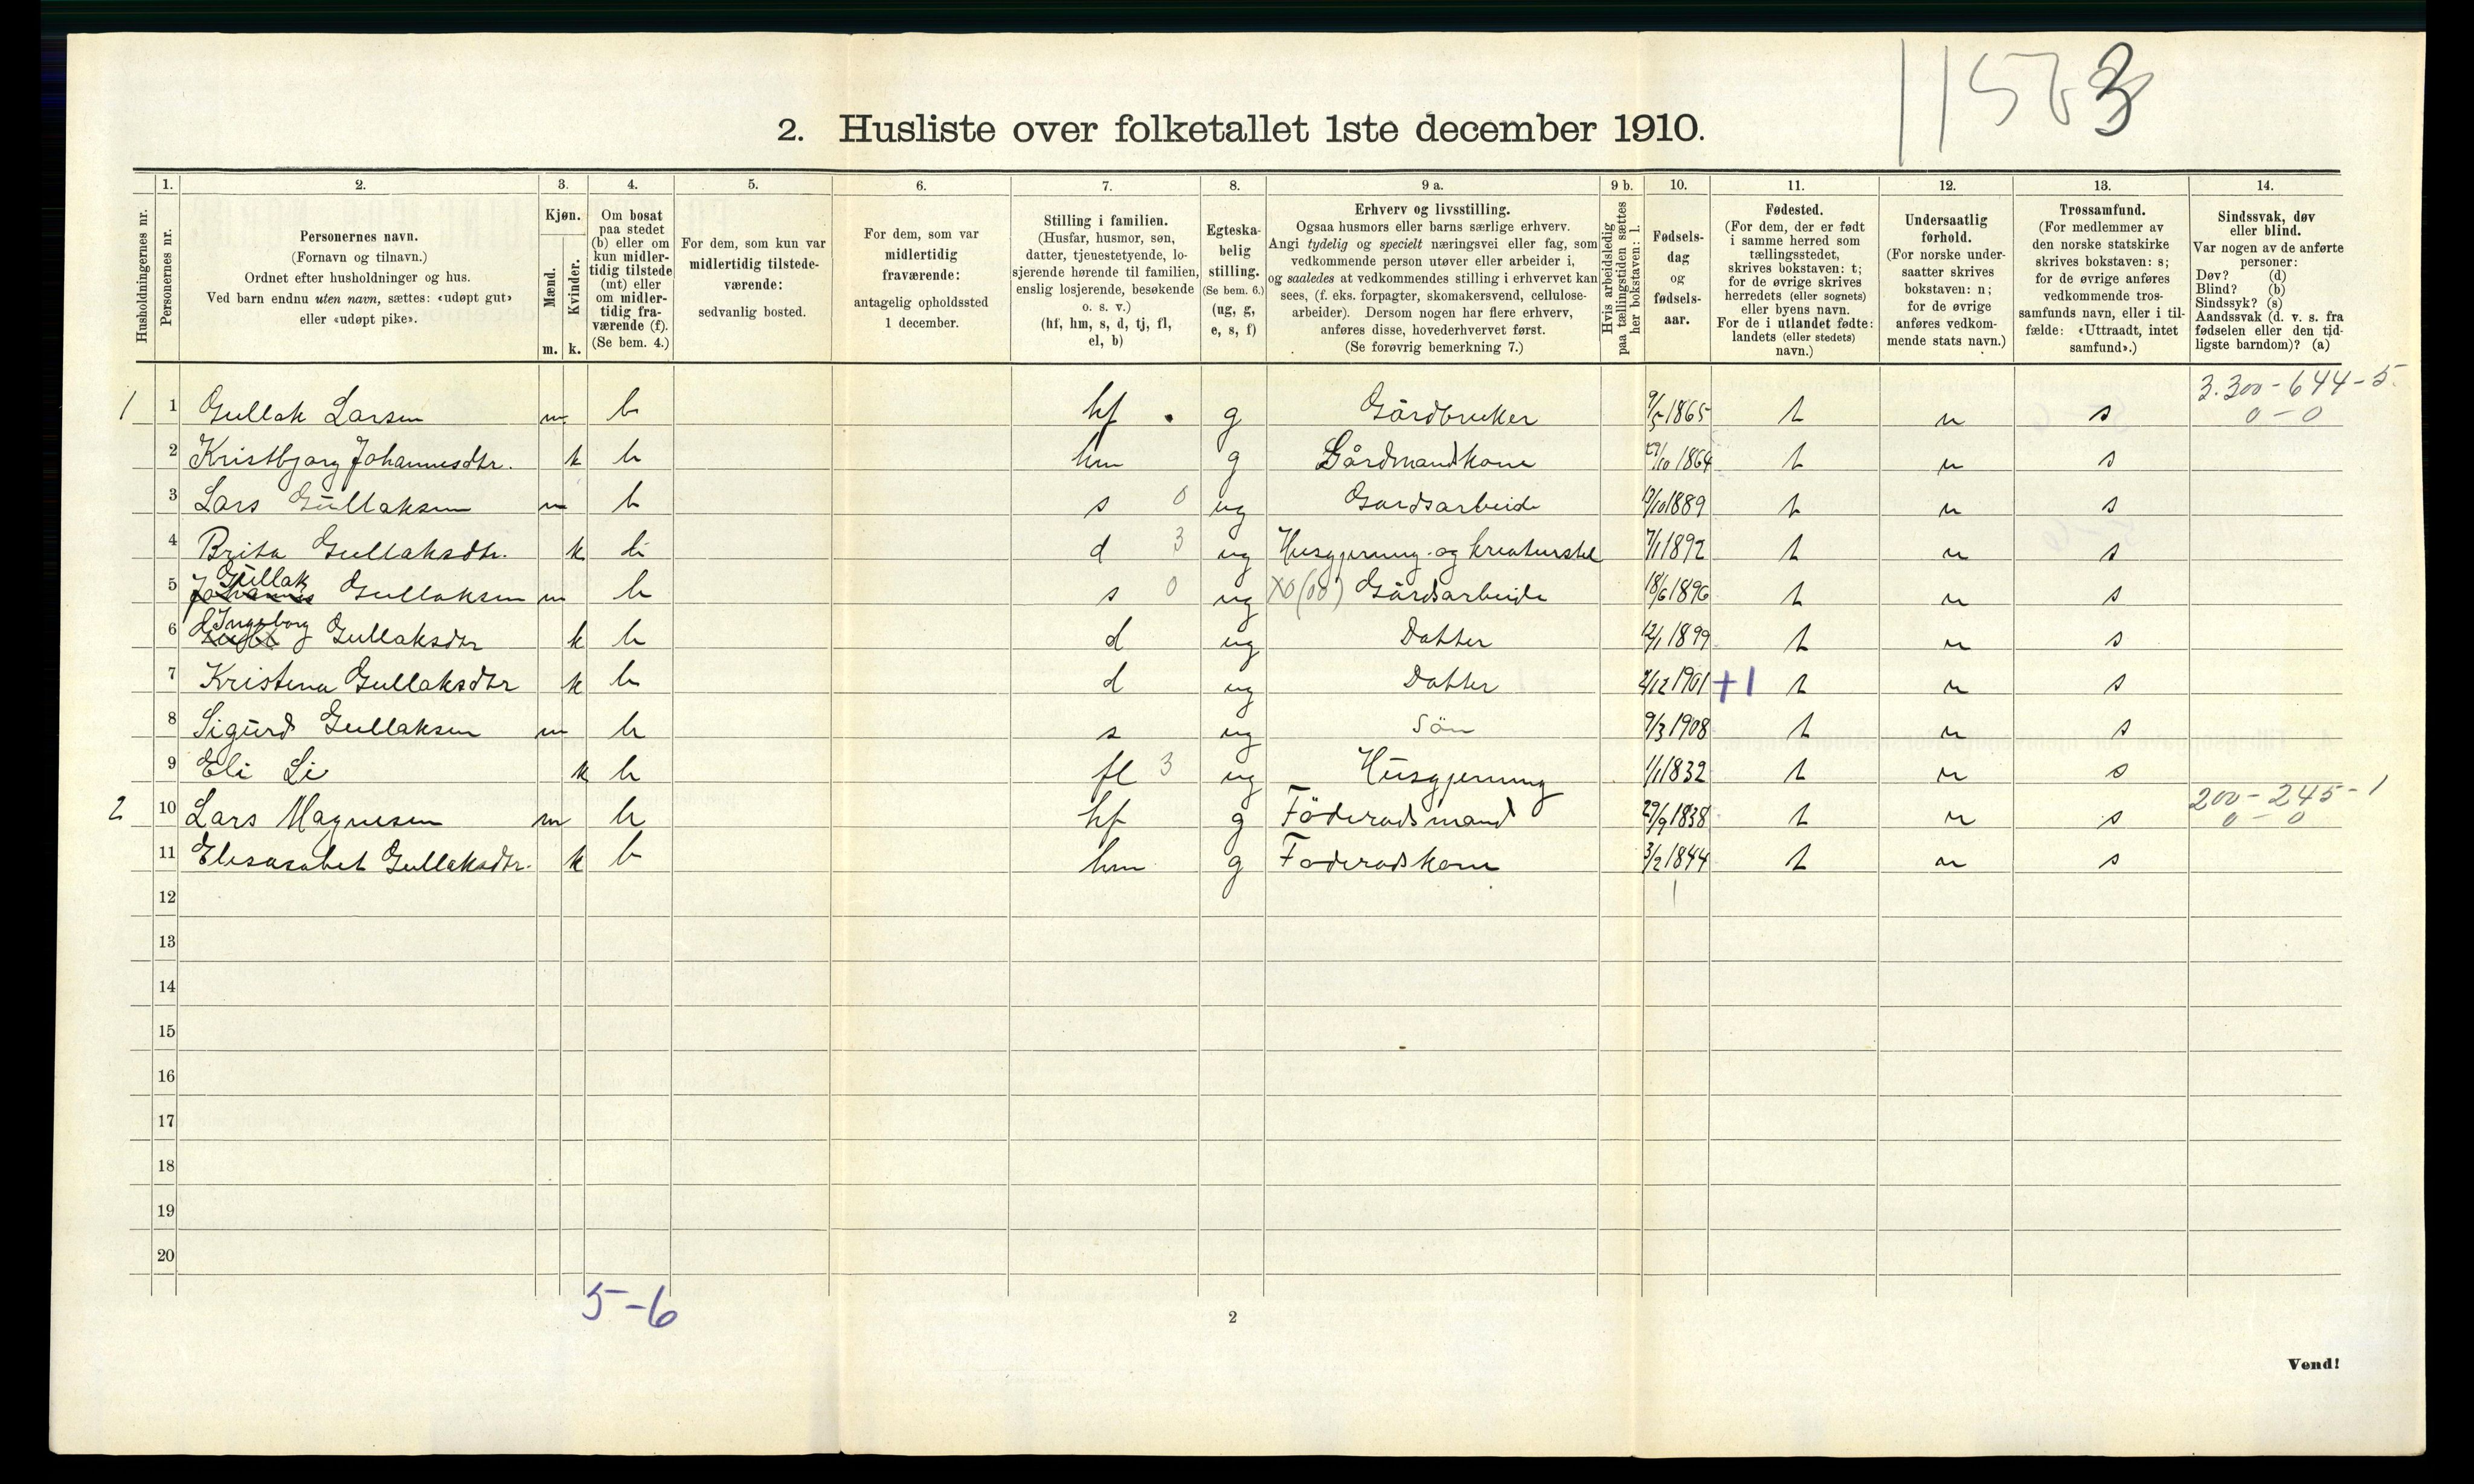 2. Husliste over folketallet 1ste december 1910.
1. 2. 3. 4. 5. 6. 7. 8. 9 a. 9 b. 10. 11. 12. 13. 14.
Husholdningernes nr.
Personernes nr.
Personernes navn.
(Fornavn og tilnavn.)
Ordnet efter husholdninger og hus.
Ved barn endnu uten navn, sættes: «udøpt gut»
eller «udøpt pike».
Kjøn.
Mænd.
Kvinder.
m. k.
Om bosat
paa stedet
(b) eller om
kun midler-
tidig tilstede
(mt) eller
om midler-
tidig fra-
værende (f).
(Se bem. 4.)
For dem, som kun var
midlertidig tilstede-
værende:
sedvanlig bosted.
For dem, som var
midlertidig
fraværende:
antagelig opholdssted
1 december.
Stilling i familien.
(Husfar, husmor, søn,
datter, tjenestetyende, lo-
sjerende hørende til familien,
enslig losjerende, besøkende
o. s. v.)
(hf, hm, s, d, tj, fl,
el, b)
Egteska-
belig
stilling.
(Se bem. 6.)
(ug, g,
e, s, f)
Erhverv og livsstilling.
Ogsaa husmors eller barns særlige erhverv.
Angi tydelig og specielt næringsvei eller fag, som
vedkommende person utøver eller arbeider i,
og saaledes at vedkommendes stilling i erhvervet kan
sees, (f. eks. forpagter, skomakersvend, cellulose-
arbeider). Dersom nogen har flere erhverv,
anføres disse, hovederhvervet først.
(Se forøvrig bemerkning 7.)
Hvis arbeidsledig
paa tællingstiden sættes
her bokstaven: l.
Fødsels-
dag
og
fødsels-
aar.
Fødested.
(For dem, der er født
i samme herred som
tællingsstedet,
skrives bokstaven: t;
for de øvrige skrives
herredets (eller sognets)
eller byens navn.
For de i utlandet fødte:
landets (eller stedets)
navn.)
Undersaatlig
forhold.
(For norske under-
saatter skrives
bokstaven: n;
for de øvrige
anføres vedkom-
mende stats navn.)
Trossamfund.
(For medlemmer av
den norske statskirke
skrives bokstaven: s;
for de øvrige anføres
vedkommende tros-
samfunds navn, eller i til-
fælde: «Uttraadt, intet
samfund».)
Sindssvak, døv
eller blind.
Var nogen av de anførte
personer:
Døv? (d)
Blind? (b)
Sindssyk? (s)
Aandssvak (d. v. s. fra
fødselen eller den tid-
ligste barndom)? (a)
3.300-644-5
1 1 Gullak Larsen m b hf g Gårdbruker 9/5 1865 t n s 0-0
2 Kristbjorg Johannesdtr. k b hm g Gårdmandkone /10 1864 t n s
3 Lars Gullaksen m b s 0 ug Gardsarbeide 13/10 1889 t n s
4 Brita Gullaksdtr. k b d 3 ug Husgjerning og kreaturstel 7/1 1892 t n s
Gullak
5 Johannes Gullaksen m b s 0 ug X0(00) Gårdsarbeide 18/6 1896 t n s
Ingeborg
6 Gullaksdtr k b d ug Datter 12/1 1899 t n s
7 Kristena Gullaksdtr k b d ug Datter 2/12 1901 +1 t n s
8 Sigurd Gullaksen m b s ug Sön 9/3 1908 t n s
9 Eli Li k b fl 3 ug Husgjerning 1/1 1832 t n s
200-245-1
2 10 Lars Magnesen m b hf g Föderadsmand 29/9 1838 t n s 0-0
11 Elisasabet Gullaksdtr. k b hm g Foderadskone 3/2 1844 t n s
12
13
14
15
16
17
18
19
20
5-6
2
Vend!